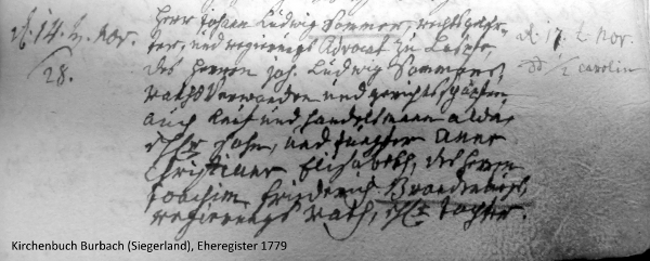 d. 14. t. Nov.
28.
Herr Johann Ludwig Sommer, rechtsgelehr-
ter, und regierungs Advocat zu
des Herren Joh. Ludwig Sommers,
raths Verwanden und gerichts schöffen,
auch Kauf und handelsmann alda,
ehl. Sohn, und Jungfer Anne
Christine Elisabeth, des Herrn
Joachim Friederich Brandenburgs,
regierungs rath, ehl. Tochter.
d. 17. t. Nov.
dd 1/2 carolin
Kirchenbuch Burbach (Siegerland), Eheregister 1779